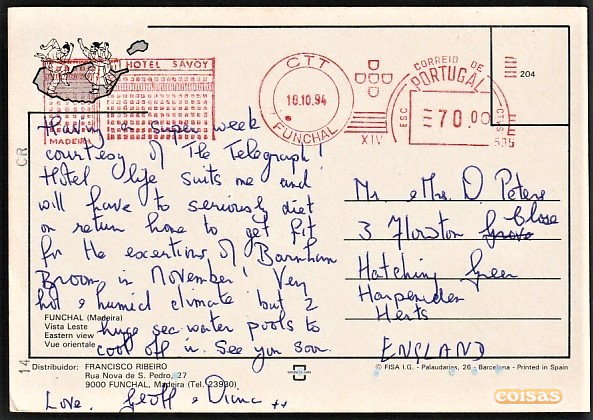 HOTEL SAVOY
MADEIRA
CTT
18.10.94
FUNCHAL
XIV
CORREIO DE
PORTUGAL
ESC.
70.00
CTVS
204
Having a super week
courtesy of The Telegraph!
Hotel life suits me and
will have to seriously diet
on return home to get fit
for the exertions of Barnham
Broom in November! Very
hot & humid climate but 2
huge sea water pools to
cool off in. See you soon.
Love, Geoff & Diana ++
Mr. & Mrs. D. Peters
3 Flowton Grove Close
Hatching Green
Harpenden
Herts
ENGLAND
CR
14
FUNCHAL (Madeira)
Vista Leste
Eastern view
Vue orientale
Distribuidor: FRANCISCO RIBEIRO
Rua Nova de S. Pedro, 27
9000 FUNCHAL, Madeira (Tel. 23930)
© FISA I.G. - Palaudarias, 26 - Barcelona - Printed in Spain
coisas